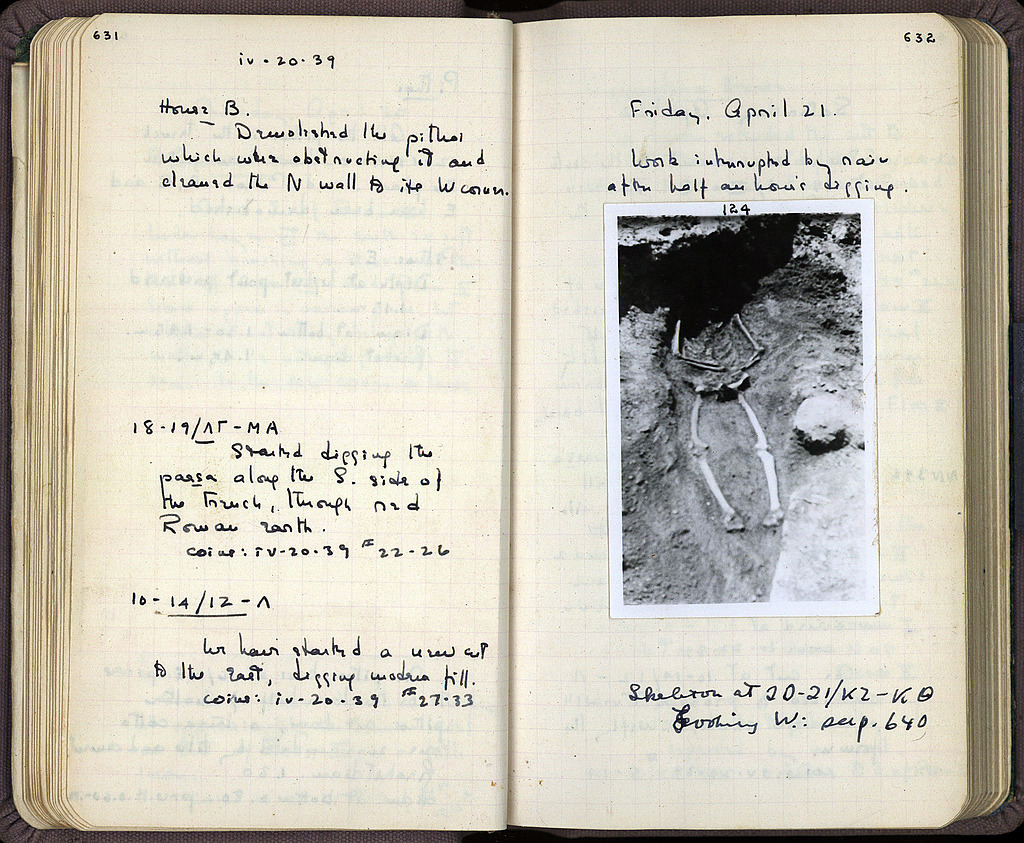 631
iv-20-39
House B.
Demolished the pithoi
which were obstructing it and
cleaned the N wall to its W corner.
18-19/ΛΓ-ΜΑ
Started digging the
passa along the S. side of
the trench, through red
Roman earth.
coins: iv-20-39 # 22-26
10-14/12-Λ
We have started a new cut
to the east, digging modern fill.
coins: iv-20-39 # 27-33
632
Friday, April 21.
Work interrupted by rain
after half an hour's digging.
124
Skeleton at 20-21/ΚΖ-ΚΘ
Looking W.: see p. 640